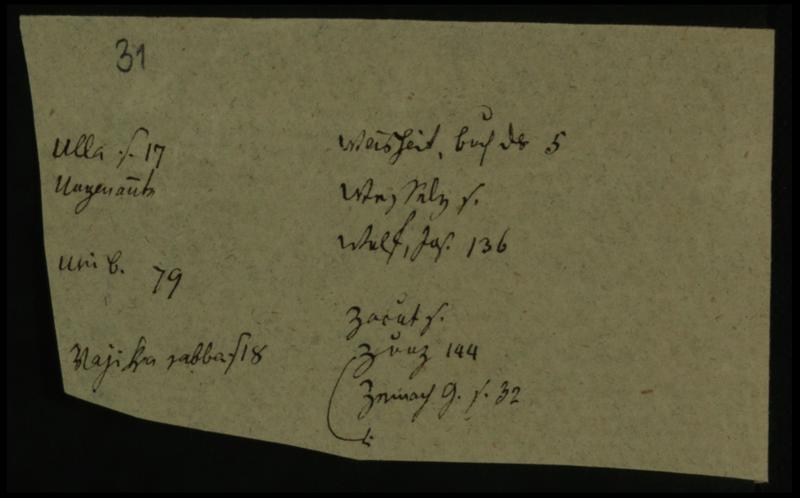 31
Ulla s. 17
Ungenannte
Uri b. 79
Vajikra rabba s 18
Weisheit, buch der 5
Wessely s.
Wolf, Jos. 136
Zacut s.
Zunz 144
Zemach G. s. 32